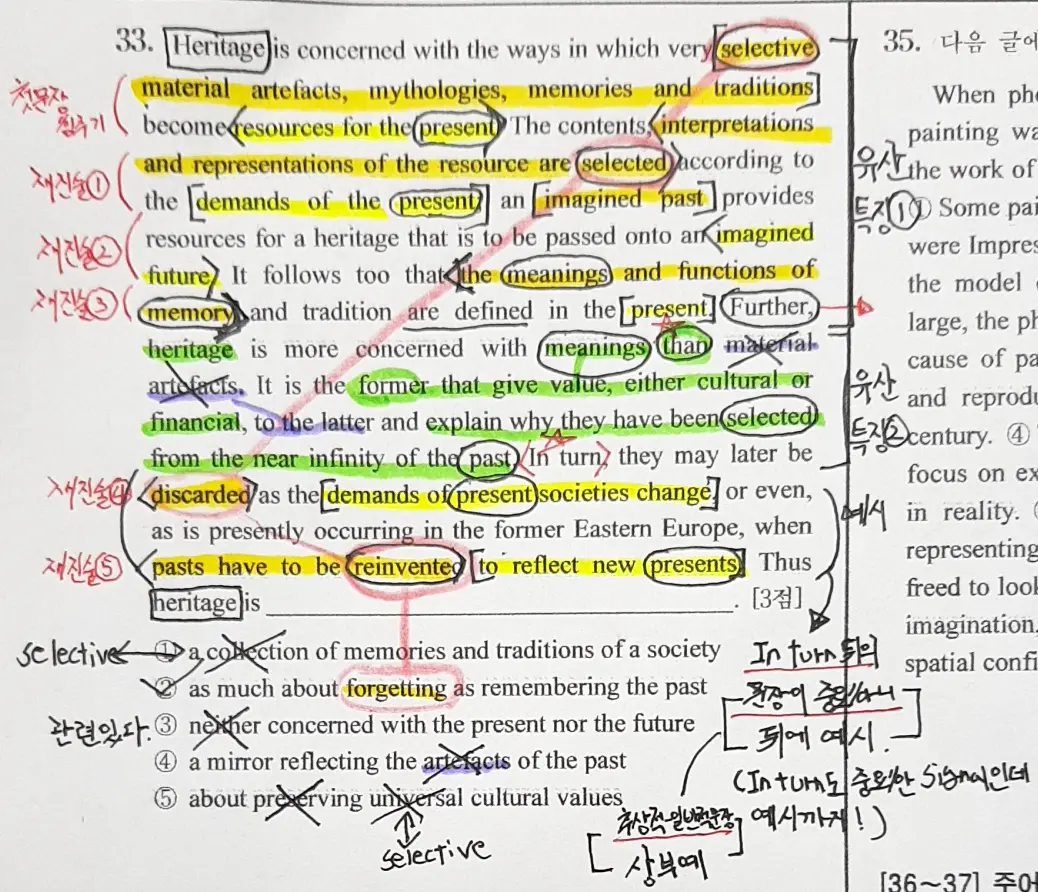 33. Heritage is concerned with the ways in which very selective
material artefacts, mythologies, memories and traditions
become resources for the present. The contents, interpretations
and representations of the resource are selected according to
the demands of the present; an imagined past provides
resources for a heritage that is to be passed onto an imagined
future. It follows too that the meanings and functions of
memory and tradition are defined in the present. Further,
heritage is more concerned with meanings than material
artefacts. It is the former that give value, either cultural or
financial, to the latter and explain why they have been selected
from the near infinity of the past. In turn, they may later be
discarded as the demands of present societies change, or even,
as is presently occurring in the former Eastern Europe, when
pasts have to be reinvented to reflect new presents. Thus
heritage is ______________________. [3점]
① a collection of memories and traditions of a society
② as much about forgetting as remembering the past
③ neither concerned with the present nor the future
④ a mirror reflecting the artefacts of the past
⑤ about preserving universal cultural values
첫문장
재진술①
재진술②
재진술③
재진술④
재진술⑤
selective
관련있다.
selective
유산
특징①
유산
특징②
예시
In turn 뒤의
문장이 중요하니
뒤에 예시.
(In turn도 중요한 Signal인데
예시까지!)
추상적 일반적문장
상부예
35. 다음 글에
When pho
painting wa
the work of
① Some pai
were Impres
the model
large, the ph
cause of pa
and reprodu
century. ④
focus on ex
in reality.
representing
freed to look
imagination,
spatial confi
[36~37] 주어